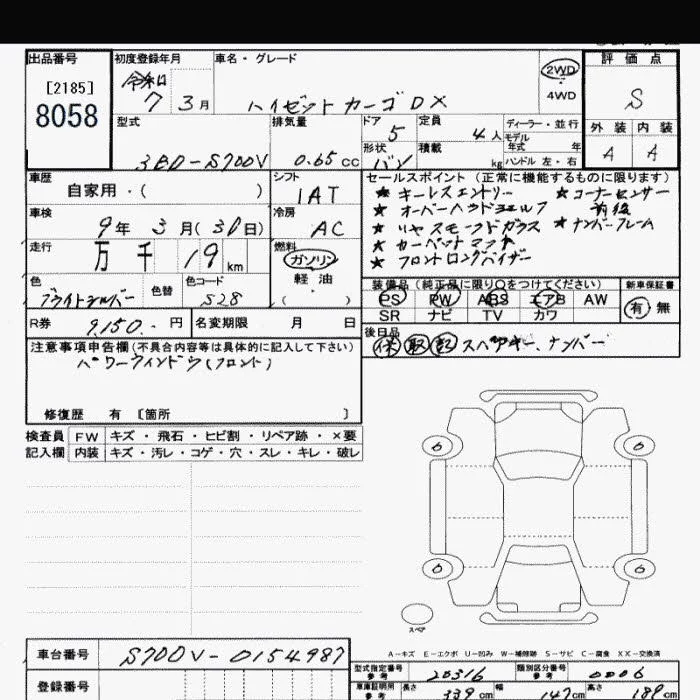 出品番号 初度登録年月 車名・グレード 評価点
[2185]
8058
令和
7 3月 ハイゼットカーゴDX
2WD
4WD
S
型式 排気量 ドア 定員 ディーラー・並行 外装 内装
3BD-S700V 0.65 cc 5 4人 モデル年式 年 A A
形状 積載
バン kg ハンドル 左・右
車歴 シフト セールスポイント(正常に機能するものに限ります)
自家用・( ) IAT
★ キーレスエントリー ★ コーナーセンサー
★ オーバーヘッドシェルフ 前後
★ リヤスモークドガラス ★ ナンバーフレーム
★ カーペットマット
★ フロントロングバイザー
車検 冷房
9年 3月(30日) AC
走行 燃料
万 千 19 km ガソリン
軽油
( )
色 色替 色コード
ブライトシルバー S28
装備品(純正品に限り○をつけてください) 新車保証書
PS PW ABS エアB AW 有 無
SR ナビ TV カワ
R券 9,150.- 円 名変期限 月 日
後日品
保 取 記 スペアキー、ナンバー
注意事項申告欄(不具合内容等は具体的に記入して下さい)
パワーウィンドウ(フロント)
修復歴 有 [箇所 ]
検査員 FW キズ・飛石・ヒビ割・リペア跡・×要
記入欄 内装 キズ・汚レ・コゲ・穴・スレ・キレ・破レ
6 6
6 6
スペア
A-キズ E-エクボ U-凹み W-補修跡 S-サビ C-腐食 XX-交換済
車台番号 S700V-0154987
型式指定番号 参考 20316 類別区分番号 参考 0006
登録番号
車庫証明用 参考 長さ 339 cm 幅 147 cm 高さ 189 cm